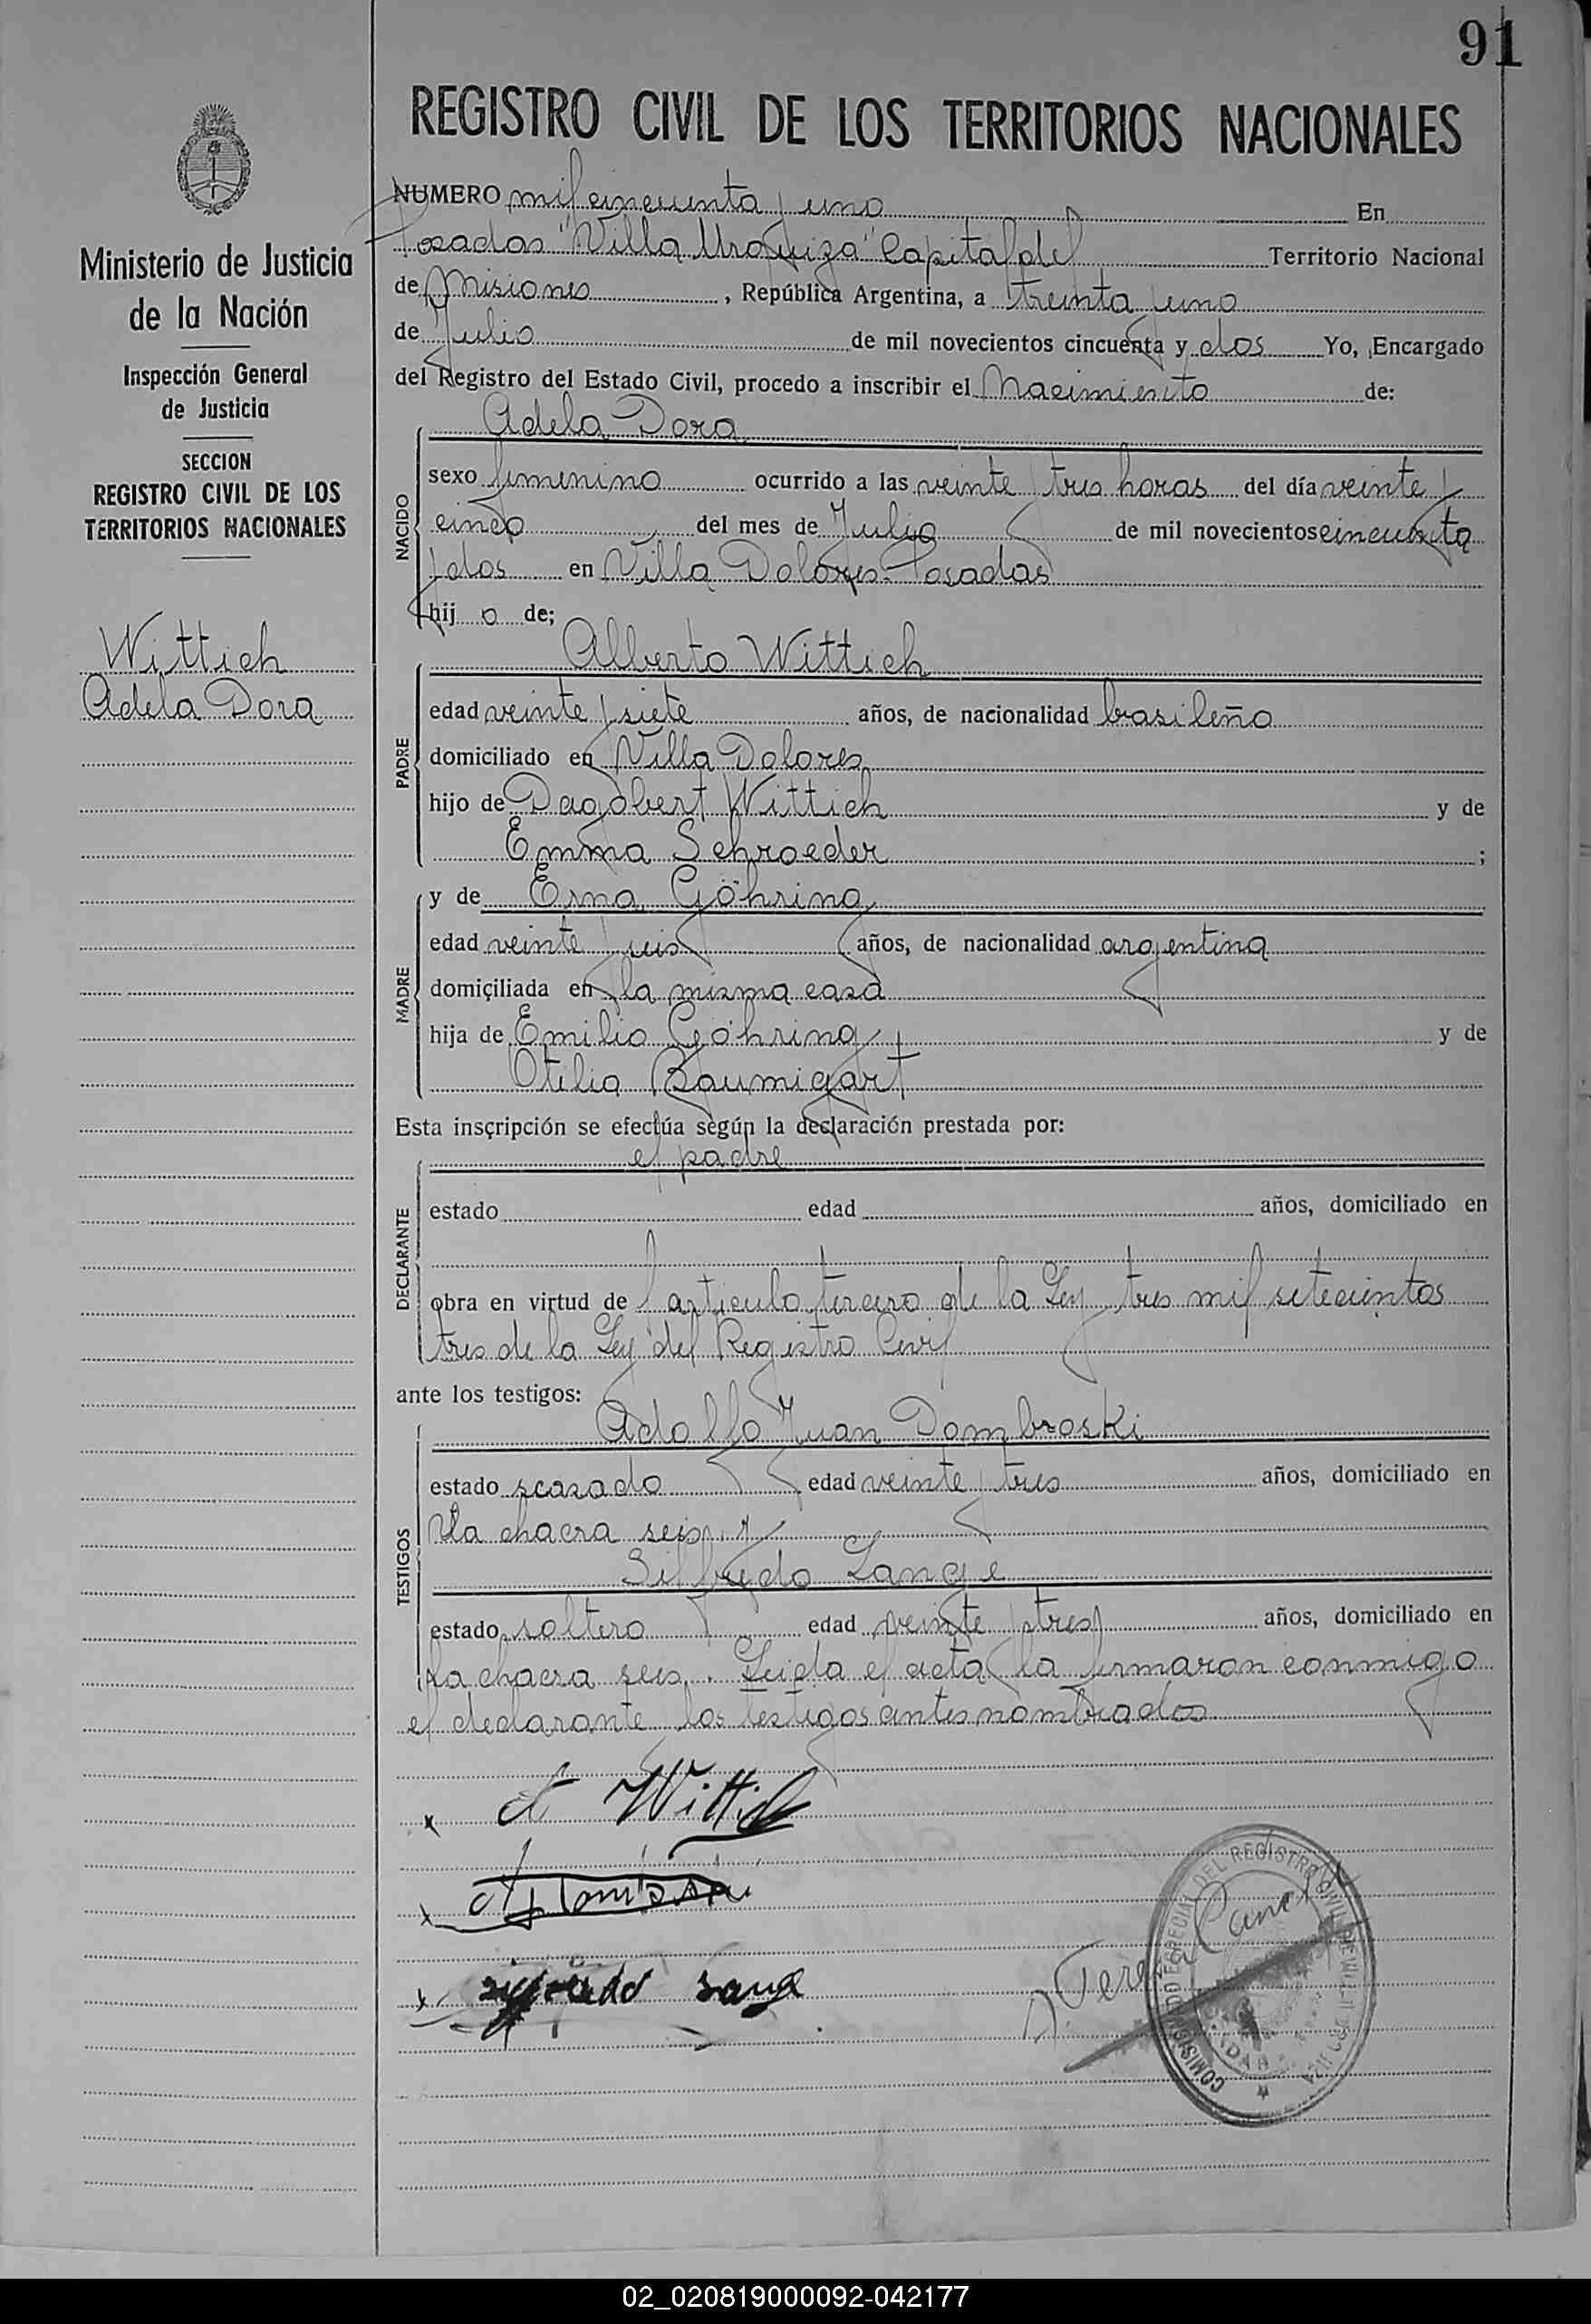 91
REGISTRO CIVIL DE LOS TERRITORIOS NACIONALES
Ministerio de Justicia
de la Nación
Inspección General
de Justicia
SECCION
REGISTRO CIVIL DE LOS
TERRITORIOS NACIONALES
Wittich
Adela Dora
NUMERO mil cincuenta y uno En
Posadas "Villa Urquiza" Capital del Territorio Nacional
de Misiones, República Argentina, a treinta y uno
de Julio de mil novecientos cincuenta y dos Yo, Encargado
del Registro del Estado Civil, procedo a inscribir el Nacimiento de:
NACIDO
Adela Dora
sexo femenino ocurrido a las veinte y tres horas del día veinte y
cinco del mes de Julio de mil novecientos cincuenta
y dos en Villa Dolores-Posadas
hij a de;
PADRE
Alberto Wittich
edad veinte y siete años, de nacionalidad brasileña
domiciliado en Villa Dolores
hijo de Dagobert Wittich y de
Emma Schroeder ;
MADRE
y de Erna Göhring
edad veinte y seis años, de nacionalidad argentina
domiciliada en la misma casa
hija de Emilio Göhring y de
Otilia Baumigart
Esta inscripción se efectúa según la declaración prestada por:
DECLARANTE
el padre
estado edad años, domiciliado en
obra en virtud de l articulo tercero de la Ley tres mil setecientos
tres de la Ley del Registro Civil
ante los testigos:
TESTIGOS
Adolfo Juan Dombroski
estado casado edad veinte y tres años, domiciliado en
la chacra seis y
Silfredo Lange
estado soltero edad veinte y tres años, domiciliado en
la chacra seis. Leida el acta la firmaron conmigo
el declarante y los testigos antes nombrados
A Wittich
COMISIONADO ESPECIAL DEL REGISTRO CIVIL
02_020819000092-042177